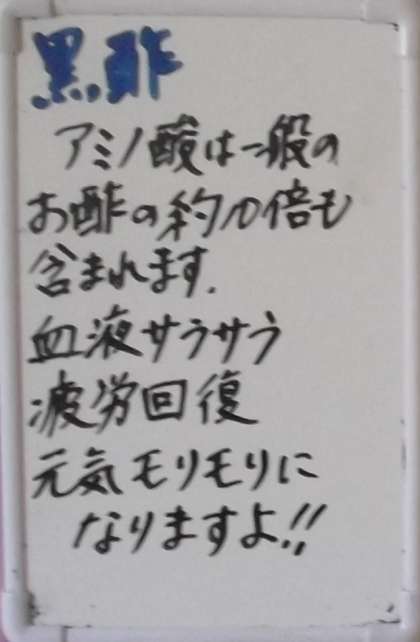 黒酢
アミノ酸は一般の
お酢の約10倍も
含まれます.
血液サラサラ
疲労回復
元気モリモリに
なりますよ!!